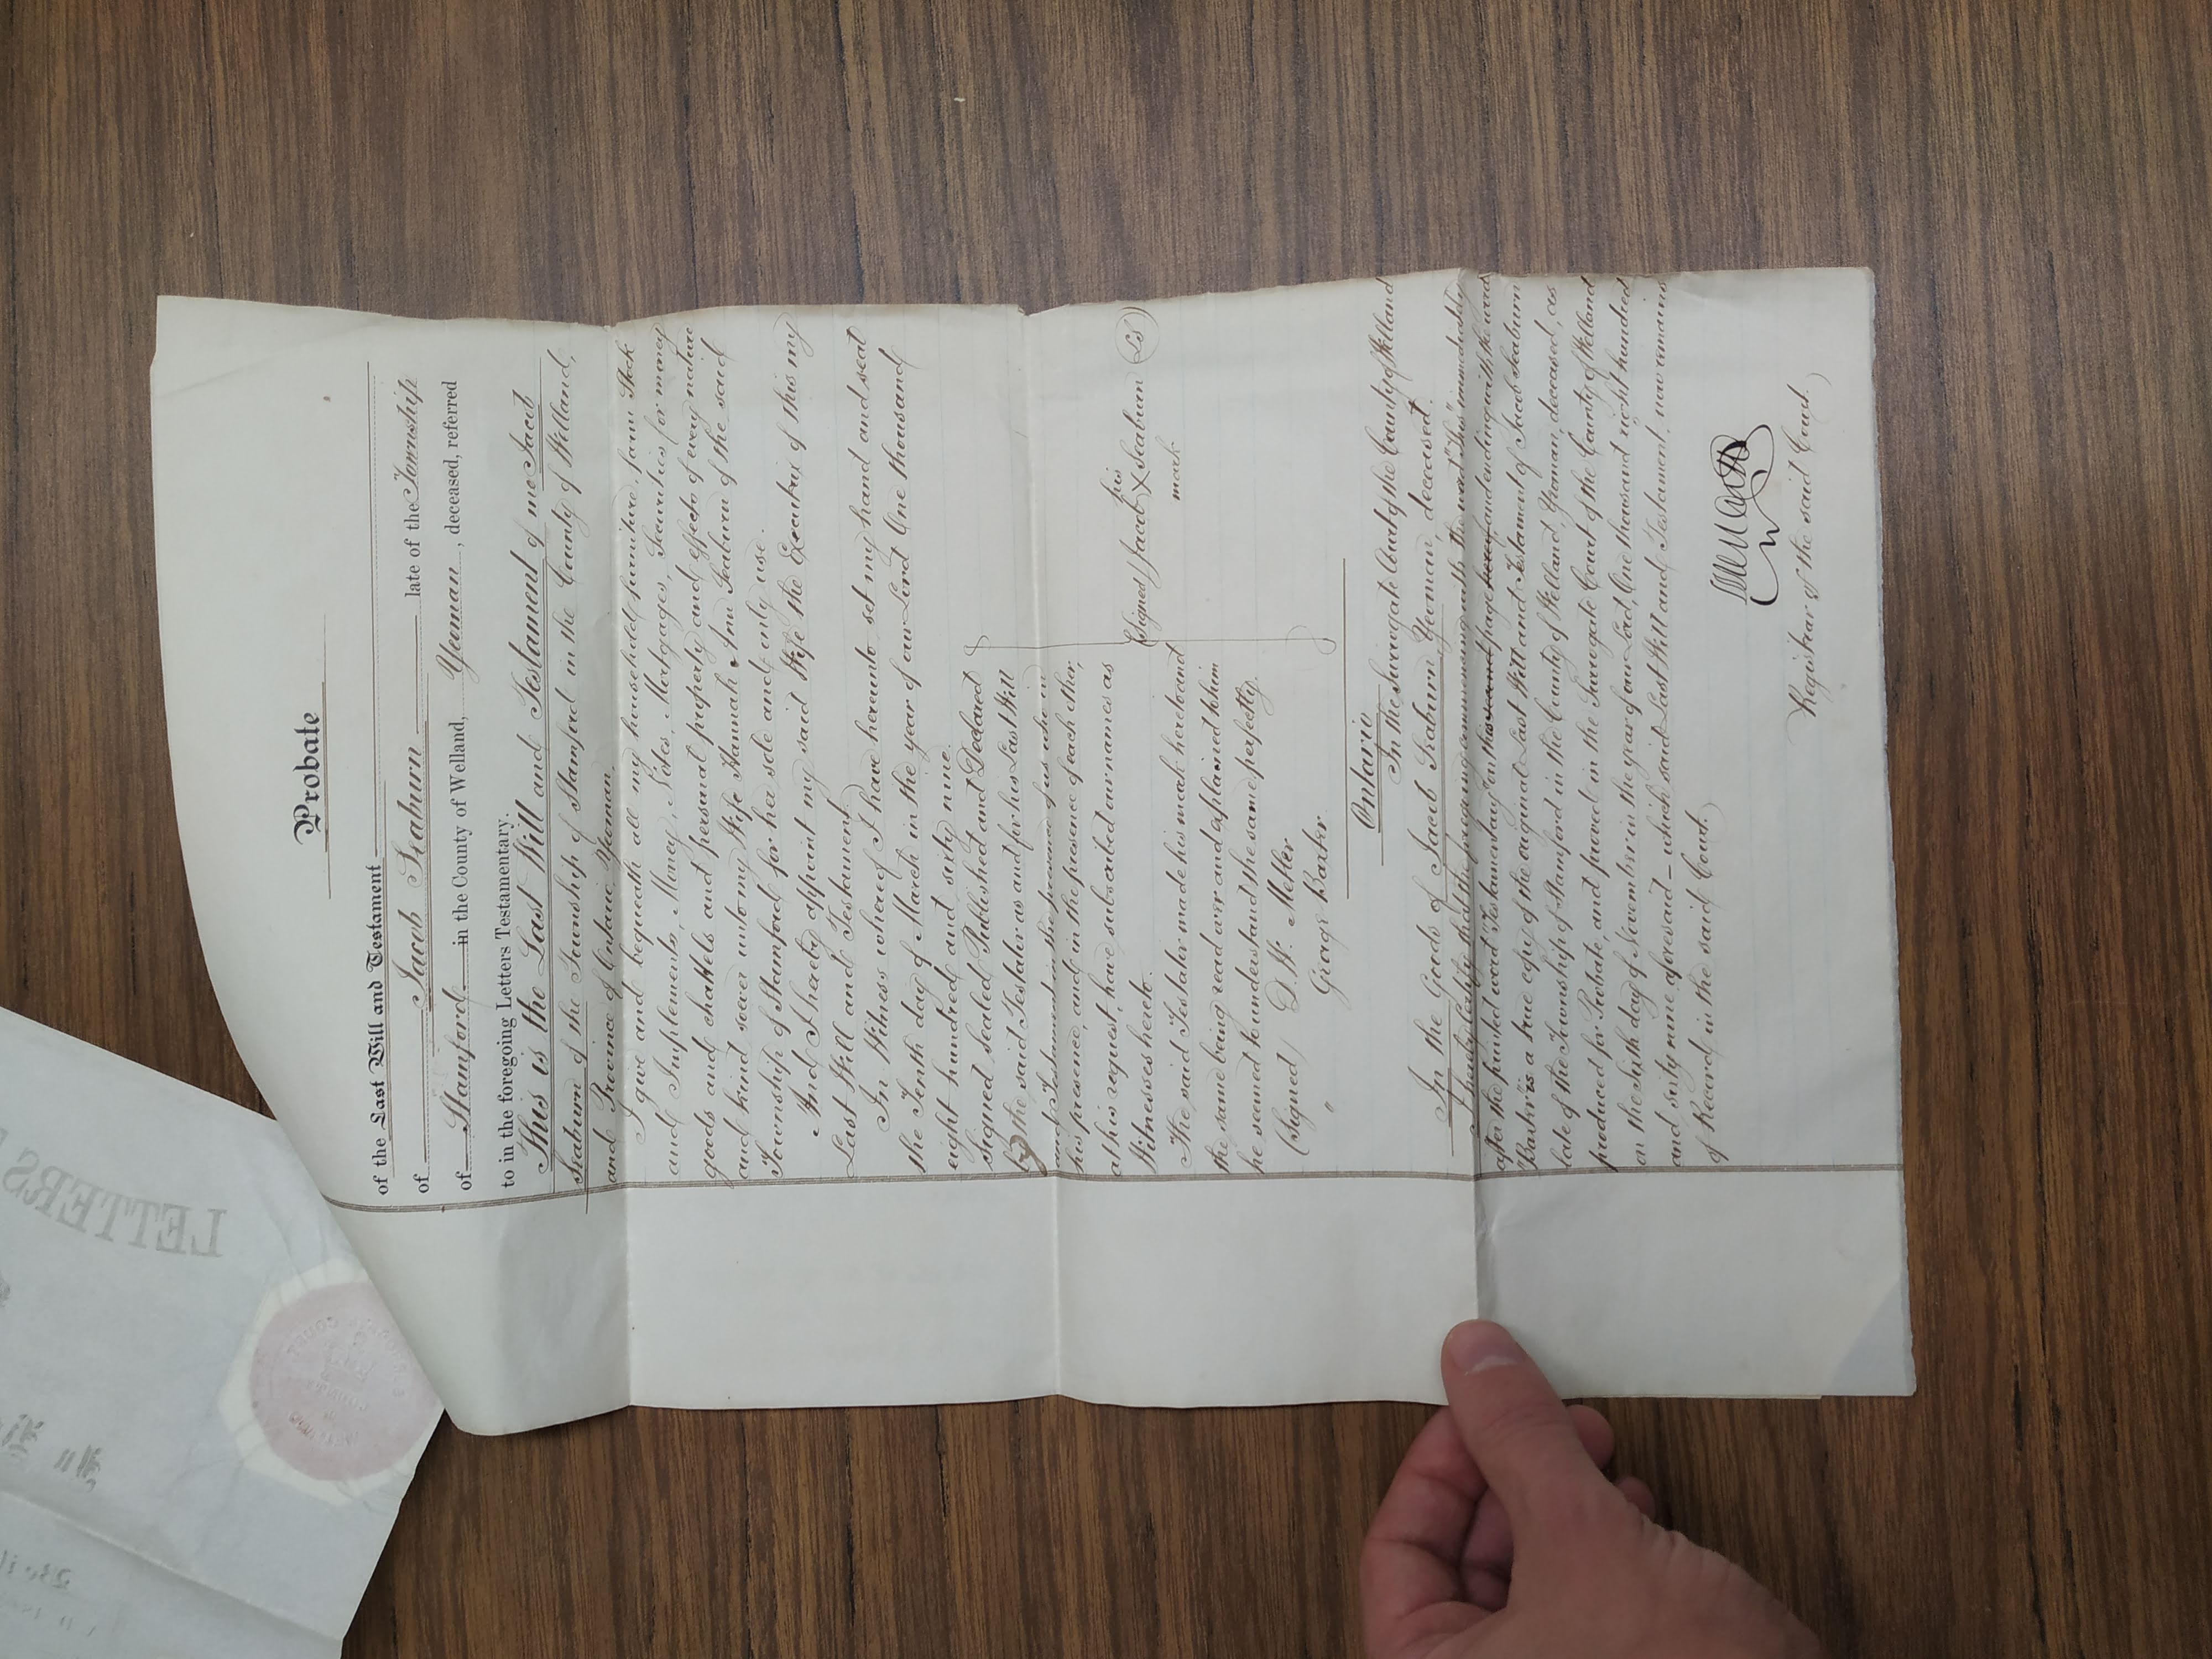 Probate
of the Last Will and Testament
of Jacob Seaburn late of the Township
of Stamford in the County of Welland, Yeoman, deceased, referred
to in the foregoing Letters Testamentary.
This is the Last Will and Testament of me Jacob
Seaburn of the Township of Stamford in the County of Welland,
and Province of Ontario Yeoman.
I give and bequeath all my household furniture, farm Stock
and Implements, Money, Notes, Mortgages, Securities for money
goods and chattels and personal property and effects of every nature
and kind soever unto my Wife Hannah Ann Seaburn of the said
Township of Stamford for her sole and only use.
And I hereby appoint my said Wife the Executrix of this my
Last Will and Testament
In Witness whereof I have hereunto set my hand and seal
the Tenth day of March in the year of our Lord One thousand
eight hundred and sixty nine.
Signed Sealed Published and Declared
by the said Testator as and for his Last Will
and Testament in the presence of us who in
his presence, and in the presence of each other,
at his request, have subscribed our names as
Witnesses hereto.
The said Testator made his mark hereto and
the same being read over and explained to him
he seemed to understand the same perfectly.
(Signed) D. W. Metler
" George Barker
(Signed) Jacob X Seaburn LS
his
mark
Ontario
In the Surrogate Court of the County of Welland
In the Goods of Jacob Seaburn, Yeoman, deceased.
I hereby certify that the foregoing commencing with the word "This" immediately
after the printed word "Testamentary" on this page and ending with the word
"Barker" is a true copy of the original Last Will and Testament of Jacob Seaburn
late of the Township of Stamford in the County of Welland, Yeoman, deceased, as
produced for Probate, and proved in the Surrogate Court of the County of Welland
on the sixth day of November in the year of our Lord, One thousand eight hundred
and sixty nine aforesaid – which said Last Will and Testament, now remains
of Record in the said Court.
Registrar of the said Court.
LETTERS